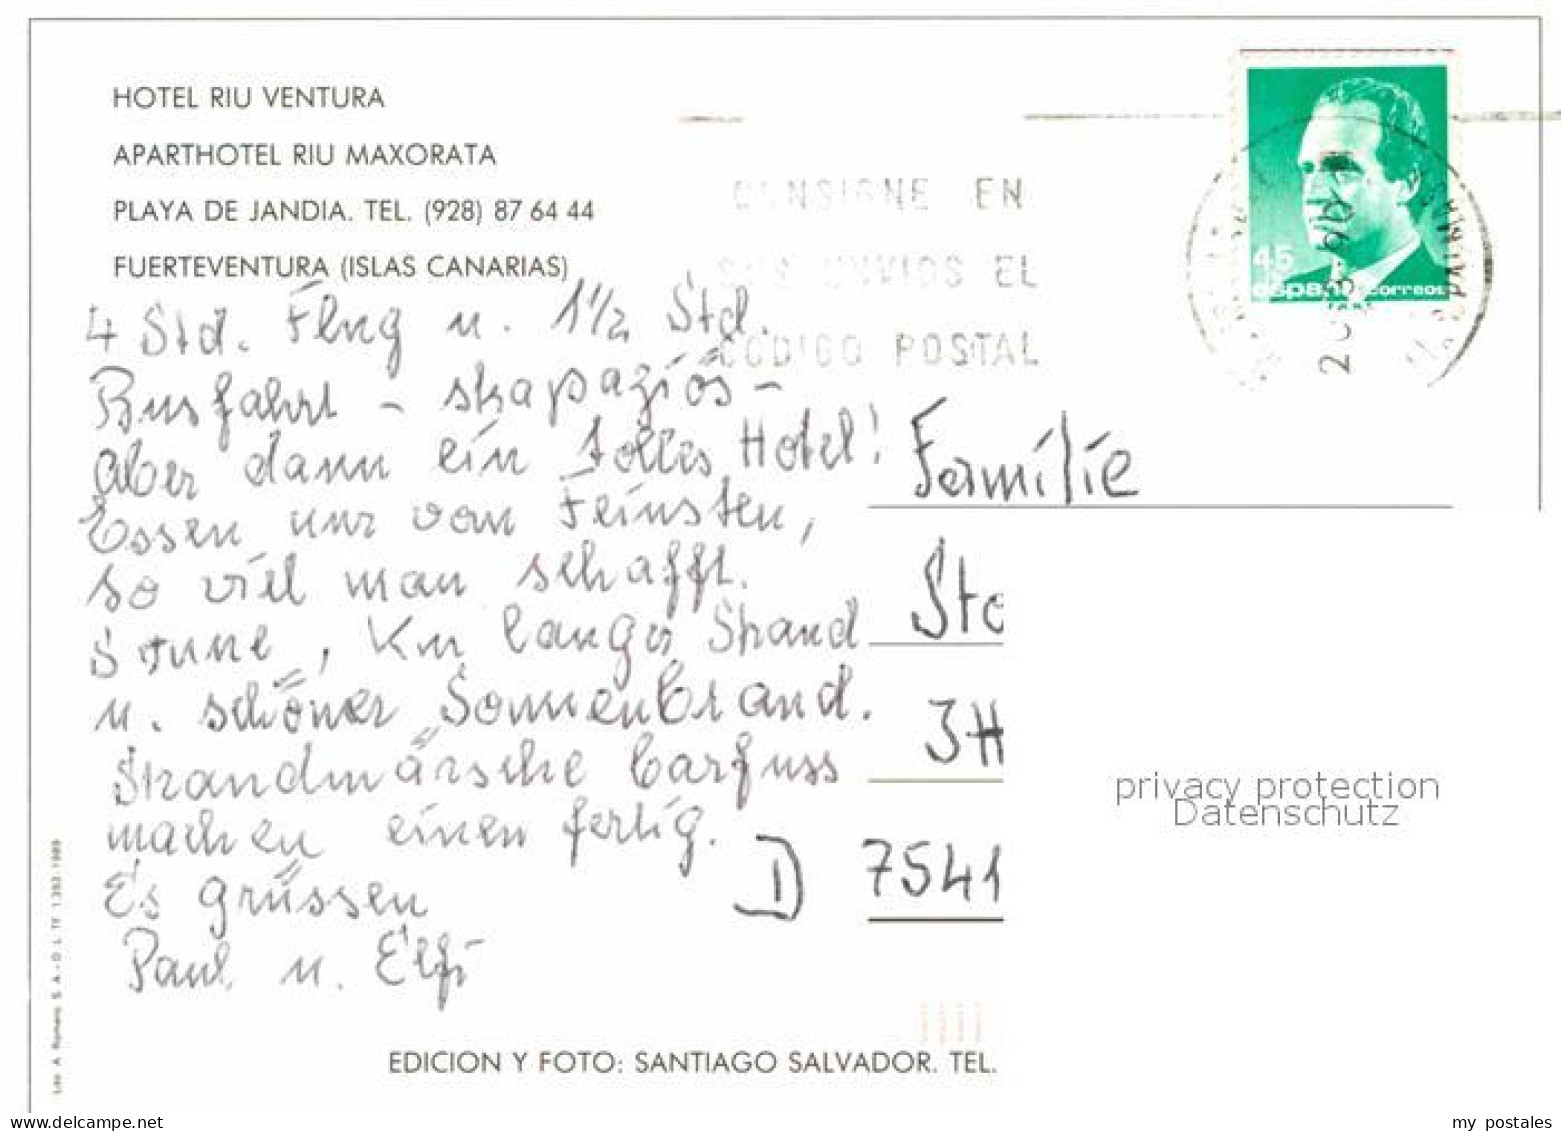 HOTEL RIU VENTURA
APARTHOTEL RIU MAXORATA
PLAYA DE JANDIA. TEL. (928) 87 64 44
FUERTEVENTURA (ISLAS CANARIAS)
CONSIGNE EN
SUS ENVIOS EL
CODIGO POSTAL
45
españa correos
4 Std. Flug u. 1 1/2 Std.
Busfahrt - strapaziös -
aber dann ein tolles Hotel!
Essen nur vom Feinsten,
so viel man schafft.
Sonne, Km langer Strand
u. schöner Sonnenbrand.
Strandmärsche barfuss
machen einen fertig.
Es grüssen
Paul u. Elfi
Familie
Sto
JH
D 7541
privacy protection
Datenschutz
Lito. A. Romero, S. A. - D. L. TF. 1.392-1989
EDICION Y FOTO: SANTIAGO SALVADOR. TEL.
delcampe.net
my_postales